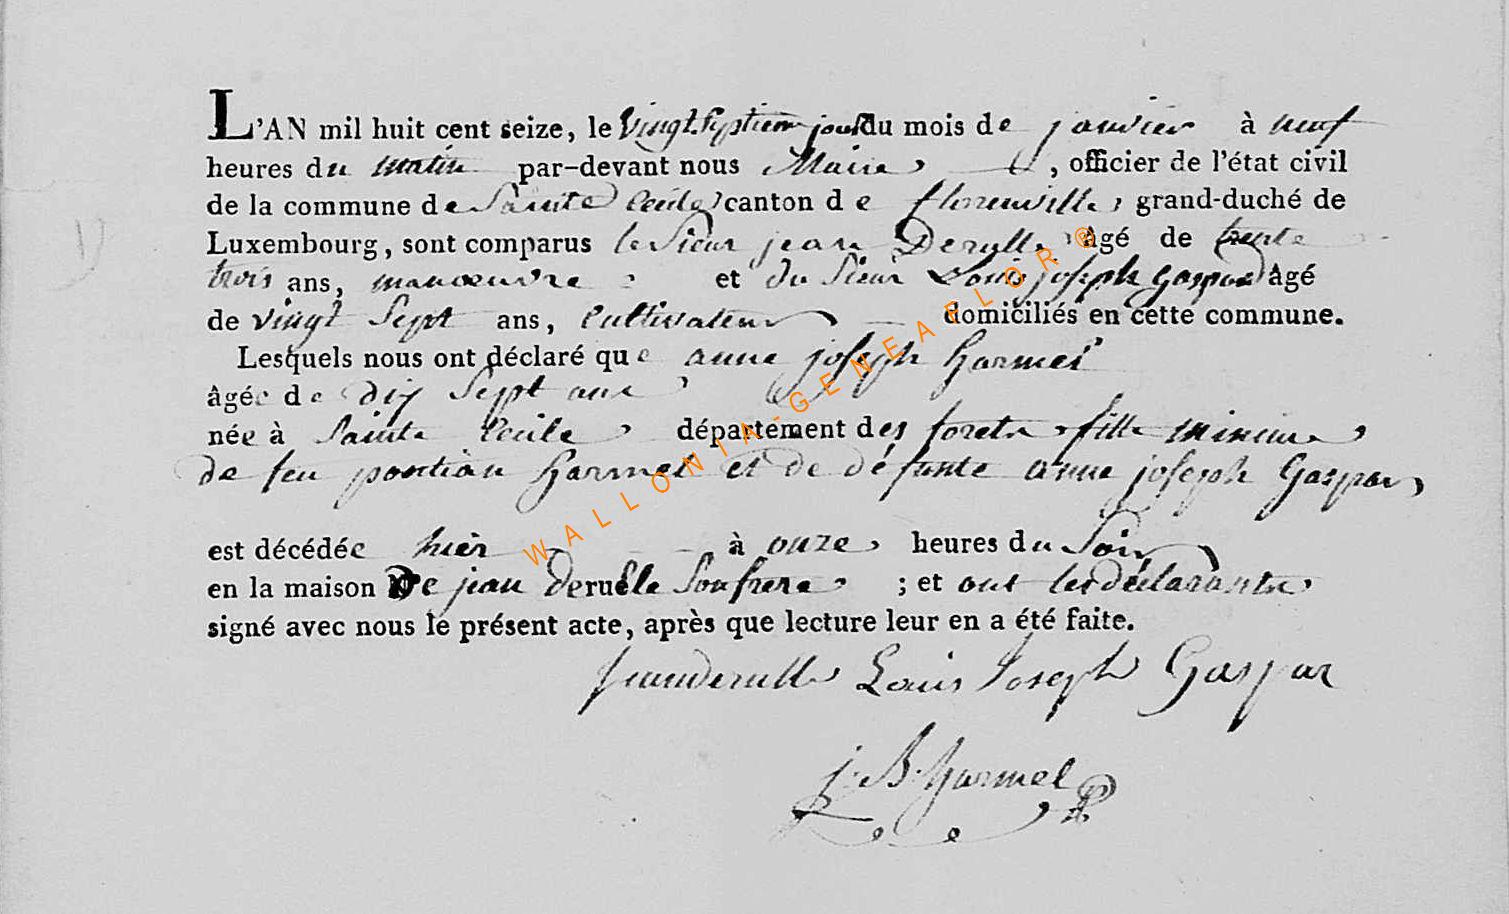 L'AN mil huit cent seize, le vingt septiem jour du mois de janvier à neuf
heures du matin par-devant nous Maire, officier de l'état civil
de la commune de Sainte Cécile canton de florenville, grand-duché de
Luxembourg, sont comparus le Sieur jean Deruelle, âgé de trente
trois ans, manoeuvre et du Sieur Louis joseph Gaspar âgé
de vingt Sept ans, Cultivateur domiciliés en cette commune.
Lesquels nous ont déclaré que anne joseph harmel
âgée de dix Sept ans
née à Sainte Cecile département des forets, fille mineure
de feu pontian harmel et de défunte anne joseph Gaspar,
est décédée hier à onze heures du Soir
en la maison De jean deruelle Son frere ; et ont les déclarants
signé avec nous le présent acte, après que lecture leur en a été faite.
jeanderuelle Louis Joseph Gaspar
j. B. harmel
WALLONIA-GENEAFLOR ®